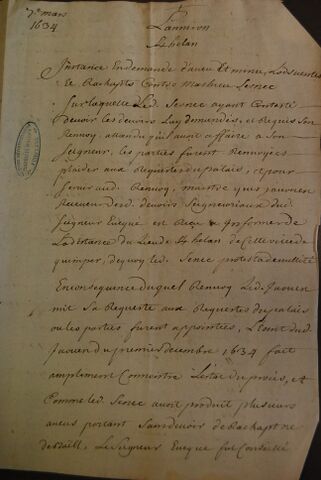 7e mars
1634
Lanniron
St helan
Instance En demande d'aveu Et minu, Lods ventes
Et Rachapts Contre Mathieu Senec
Sur laquelle Led. Senec ayant Contesté
Devoir les devoirs Luy demandés, et Requis Son
Renvoy, attandu qu'il avoit affaire a Son
Seigneur, les parties furent Renvoyées
plaider aux Requestes du palais, et pour
servir aud. Renvoy, maistre yves Jaouen
Receveur des d. devoirs Seigneuriaux dud
Seigneur Eveque est Receu a Informer de
La distance du Lieu de St helan de Cette ville de
quimper, de quoy led. Senec protesta de nullité
En consequence duquel Renvoy Led. Jaouen
mit Sa Requeste aux Requestes du palais
ou les parties furent appointées, L'Ecrit dud
Jaouen du premier decembre 1634 fait
amplement Connoitre L'etat du procés, et
Comme led. Senec avoit produit plusieurs
aveus portant Sans devoir de Rachapt ny
de Baill, Le Seigneur Eveque fut Conseillé